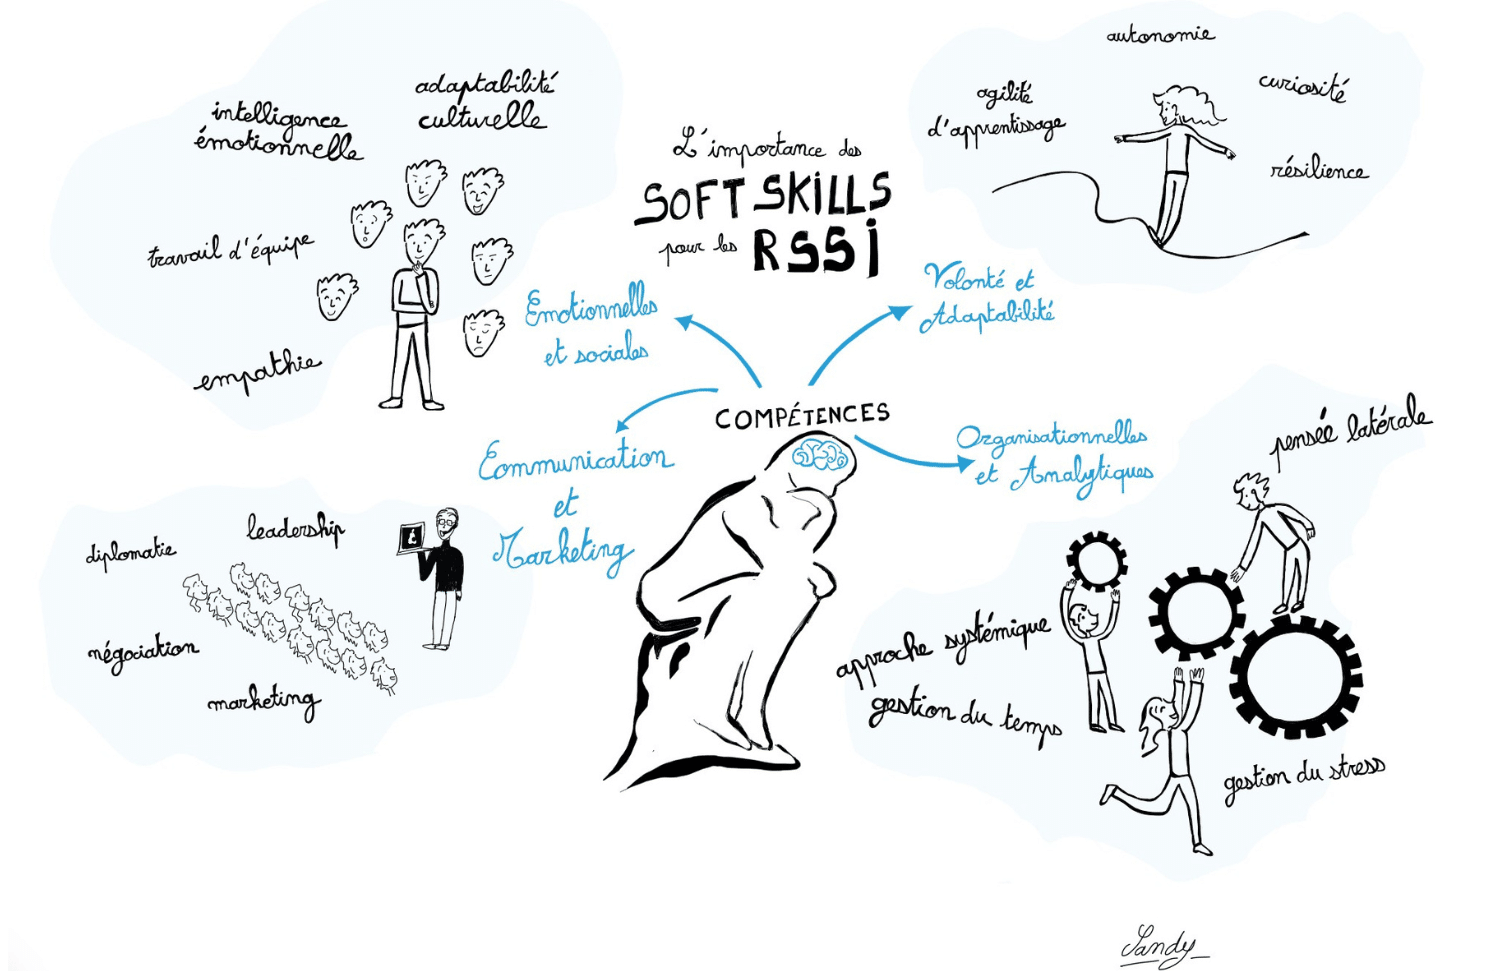 L'importance des
SOFT SKILLS
pour les RSSI
COMPÉTENCES
Emotionnelles
et sociales
intelligence
émotionnelle
adaptabilité
culturelle
travail d'équipe
empathie
Volonté et
Adaptabilité
autonomie
curiosité
agilité
d'apprentissage
résilience
Communication
et
Marketing
leadership
diplomatie
négociation
marketing
Organisationnelles
et Analytiques
pensée latérale
approche systémique
gestion du temps
gestion du stress
Sandy